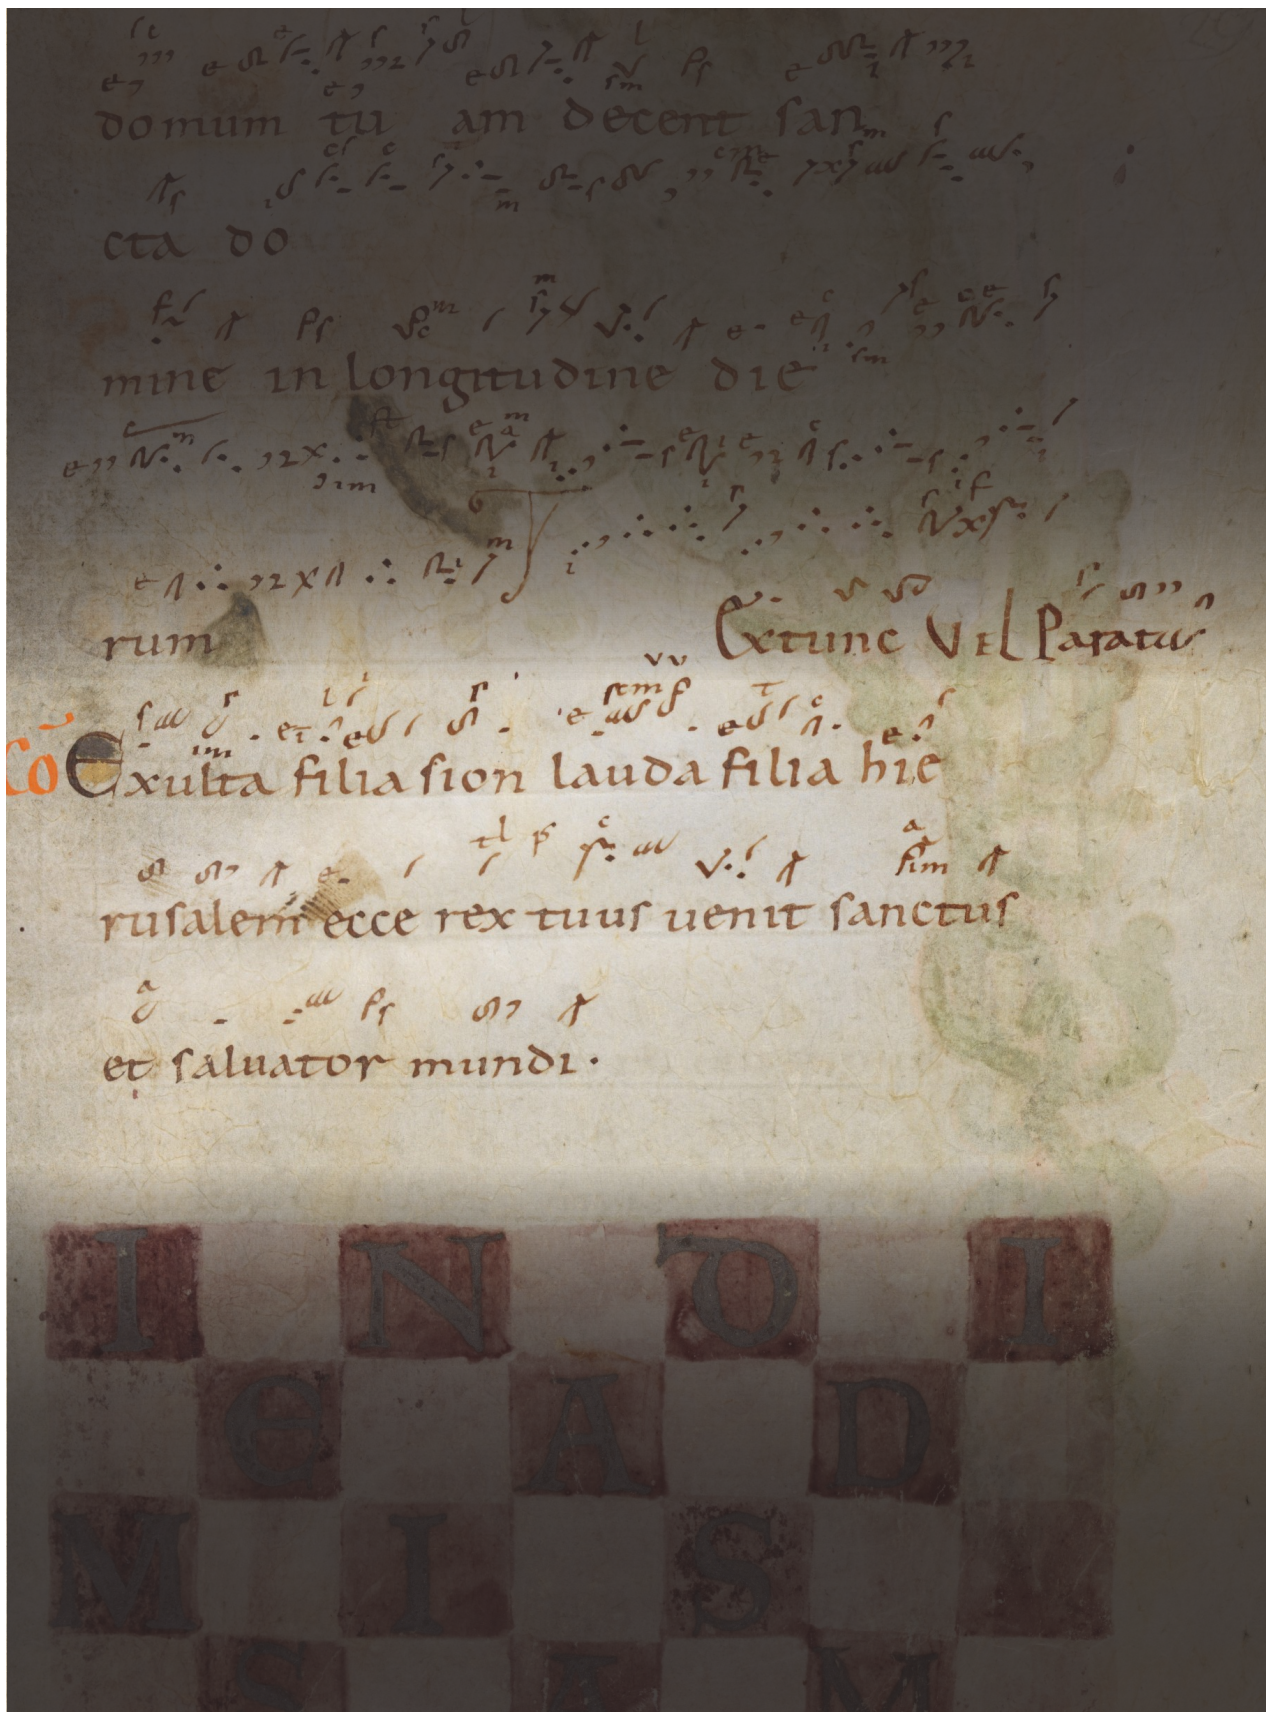 domum tu am decent san
cta do
mine in longitudine die
rum Extunc Vel Paratus
Cō Exulta filia sion lauda filia hie
rusalem ecce rex tuus uenit sanctus
et saluator mundi.
I N D I
E A D
M I S
S A M